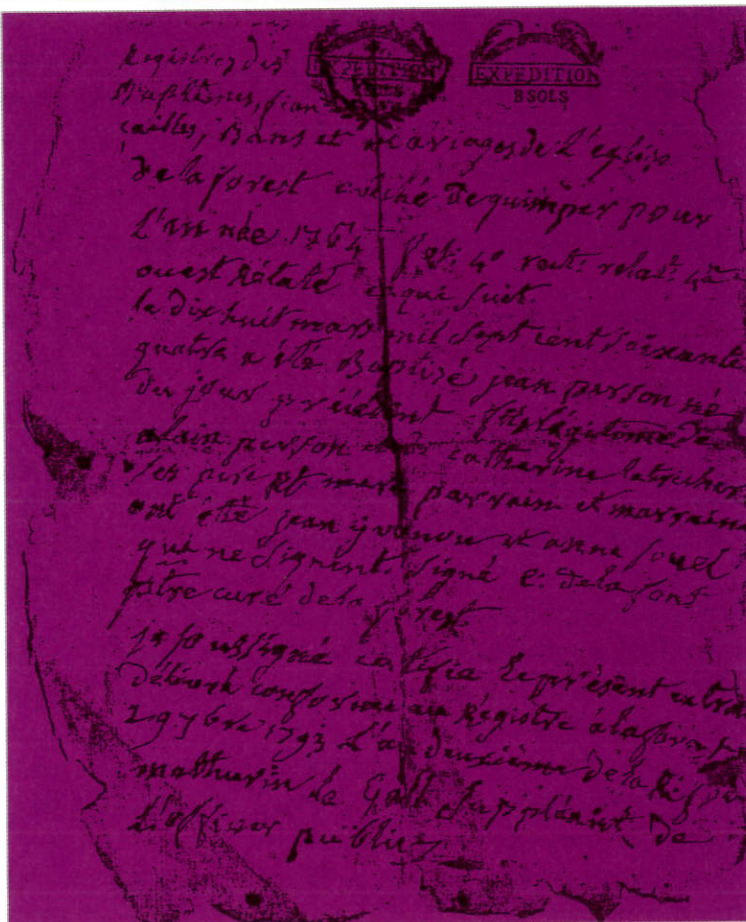 EXPEDITION
EXPEDITION
8 SOLS
Registres des
Baptêmes, fian
cailles, Bans et mariages de L'eglise
de la forest evêché de quimper pour
L'année 1764
ou est Rélaté ce qui suit.
le dix huit mars mil sept cent soixante
quatre a été Baptisé jean person né
du jour précédent fils légitime de
alain person et de catharine
ses pere et mere parrain et marraine
ont été jean yvonou et anne souel
qui ne signent. signé
ptre curé de la forest
je soussigné certifie le présent extra
délivré conforme au Régistre a la forest
29 7bre 1793 L'an deuxième de la Répu
mathurin le Gall supléant de
L'officier public